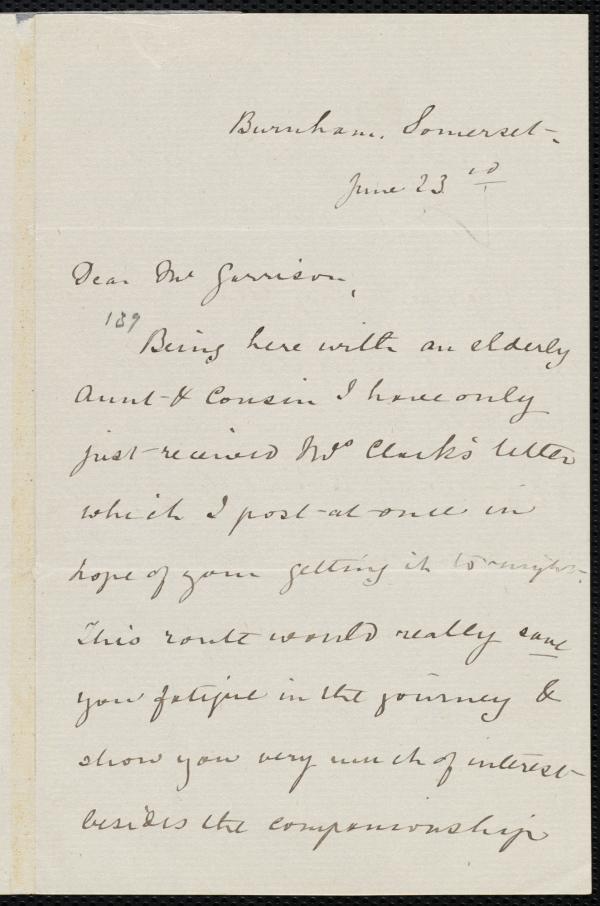 Burnham, Somerset-
June 23rd
Dear Mr Garrison,
189
Being here with an elderly
Aunt & Cousin I have only
just received Mrs Clark's letter
which I post at once in
hope of your getting it to-night.
This route would really save
you fatigue in the journey &
show you very much of interest
besides the companionship